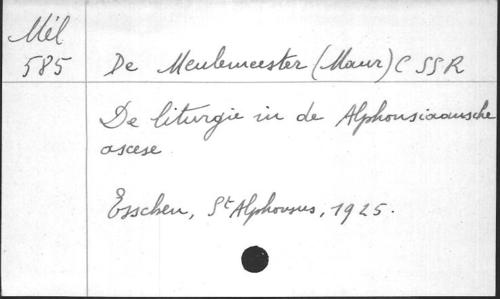 Mél
585
De Meulemeester (Maur) C SS R
De liturgie in de Alphonsiaansche
ascese
Esschen, St Alphonsus, 1925.